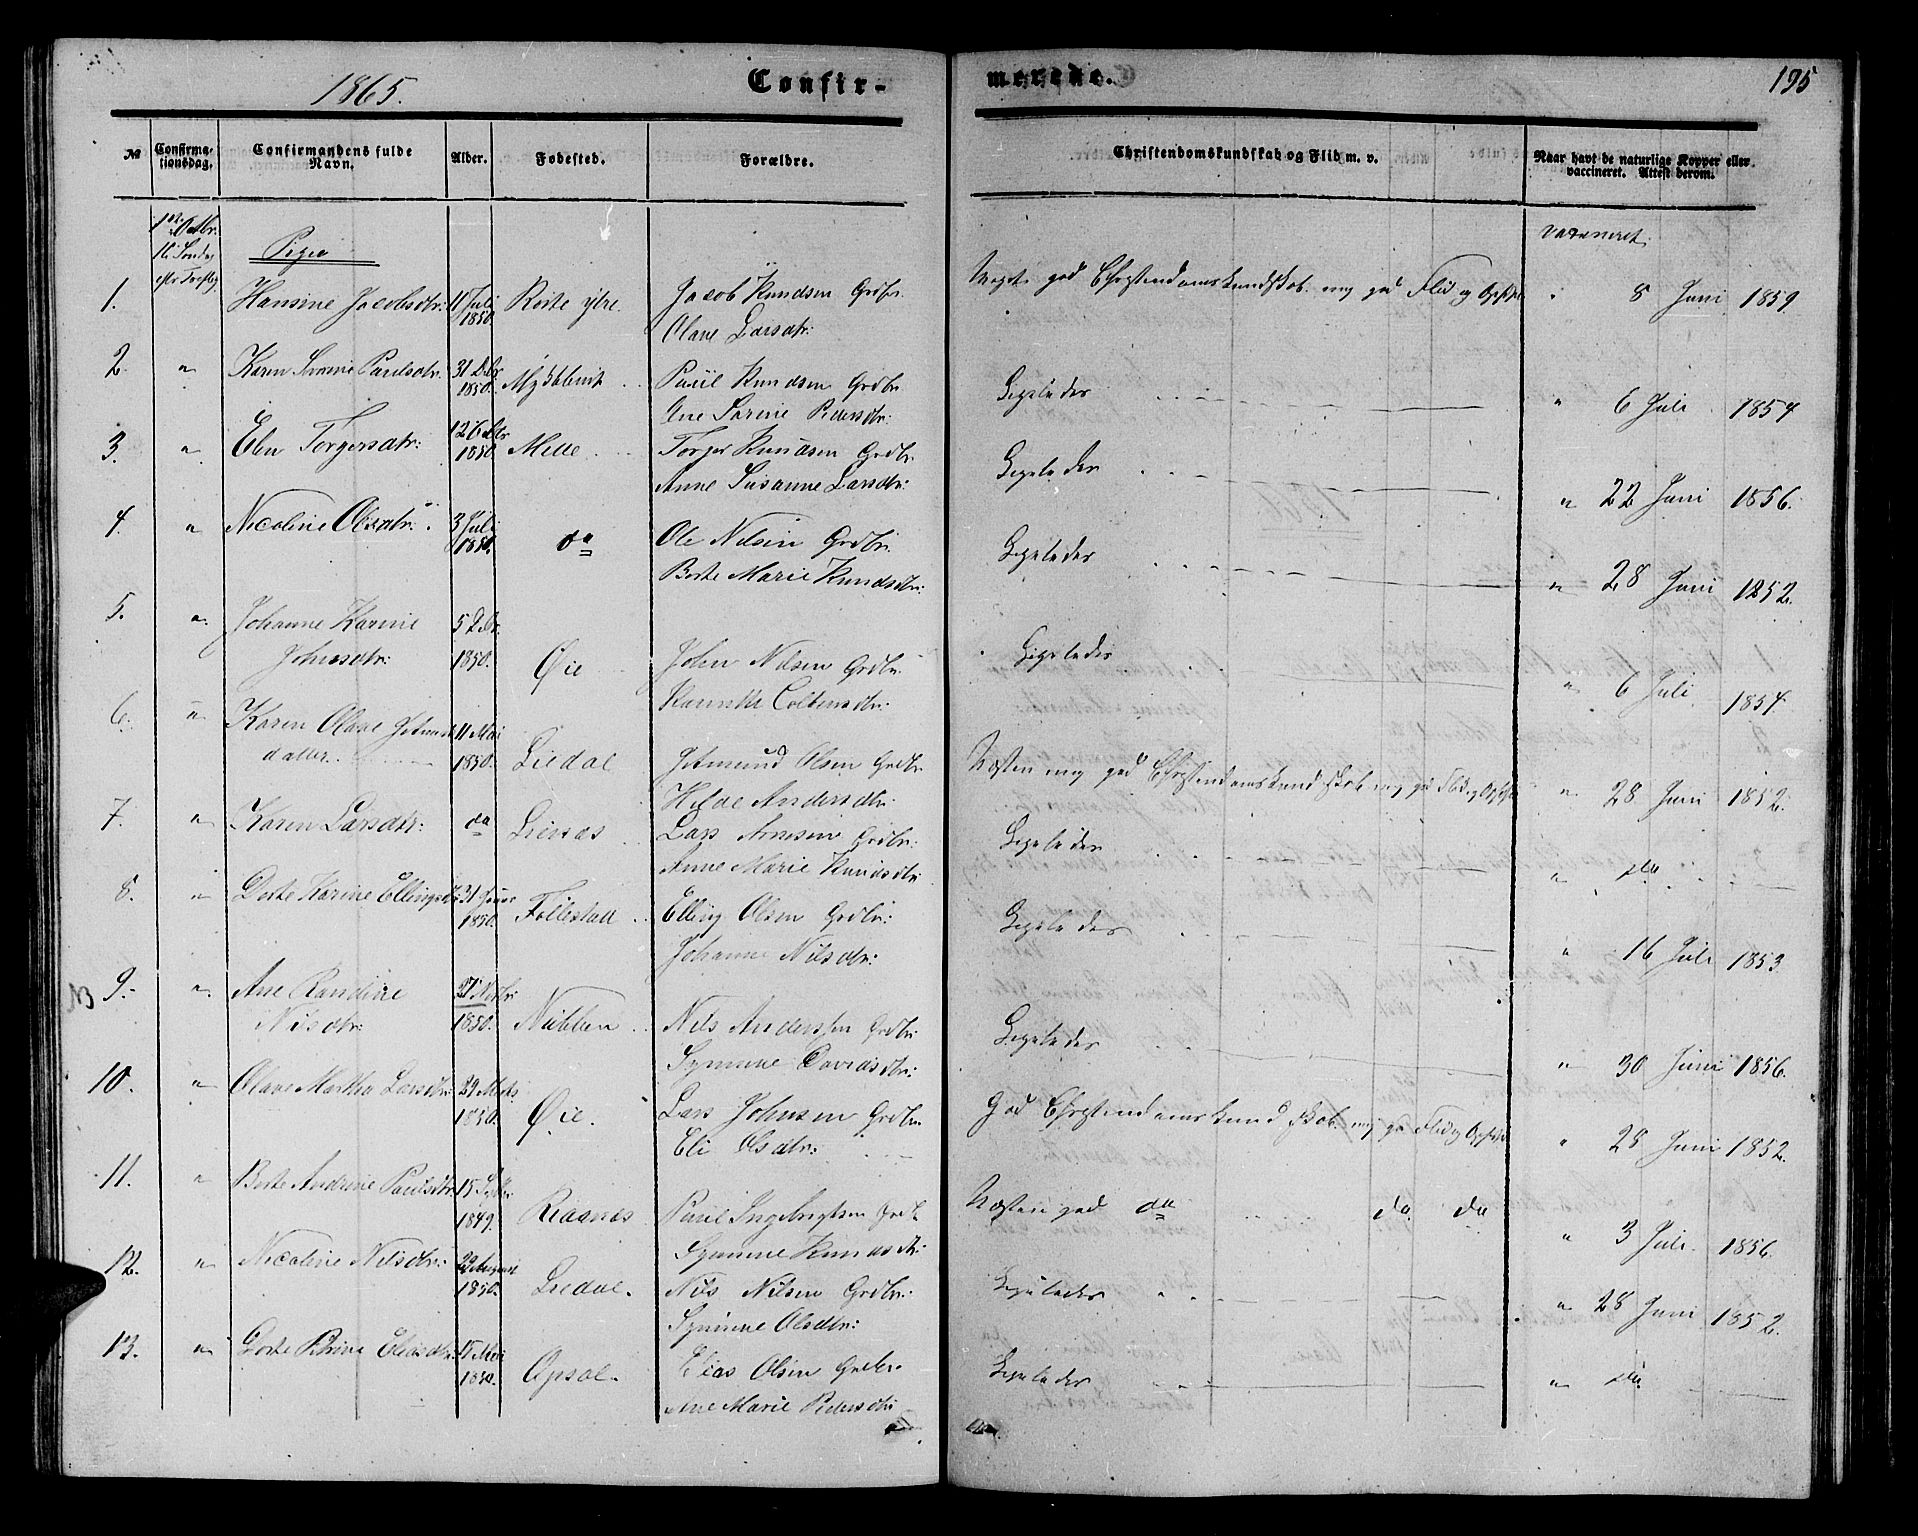 1865.
Confir-
merede.
195
№
Confirma-
tionsdag.
Confirmandens fulde
Navn.
Alder.
Fødested.
Forældre.
Christendomskundskab og Flid m. v.
Naar havt de naturlige Kopper eller
vaccineret. Attest derom.
1ste Octbr.
16 Søndag
eftr Trefltg
Piger
vaccineret.
1. Hansine Jacobsdtr: 11 Juli 1850. Roite ytre. Jacob Knudsen Grdbr.
Olave Larsdtr:
Meget god Christendomskundskab. mg god Flid og Opfs
8 Juni 1859
2. " Karen Paulsdtr. 31 Dcbr 1850. Myklebust Paul Knudsen Grdbr
Ane Sarine Pedersdtr:
Ligeledes
" 6 Juli 1854
3. " Elen Torgersdtr: 12 1850 Melle Torger Knudsen Grdbr
Anne Susanne Larsdtr:
Ligeledes
" 22 Juni 1856.
4. " Nicoline Olsdtr: 3 Juli 1850. do Ole Nilsen Grdbr.
Berte Marie Knudsdtr:
Ligeledes
" 28 Juni 1852.
5. " Johanne Karine
Johnsdtr: 5 Dcbr. 1850. Øie John Nilsen Grdbr.
Ligeledes
" 6 Juli 1854
6. " Karen Olave Jetmund
datter. 11 Mai 1850. Liedal Jetmund Olsen Grdbr
Hilde Andersdtr:
Næsten mg god Christendomskundskab. mg god Flid og Opfs
" 28 Juni 1852.
7. " Karen Larsdtr: do Lienæs Lars Arnesen Grdbr:
Anne Marie Knudsdtr
Ligeledes
" do
8. " Dorte Karine Ellingsdtr: 31 Januar 1850. Follestad Elling Olsen Grdbr:
Johanne Nilsdtr:
Ligeledes
" 16 Juli 1853
NB 9. " Ane Randine
Nilsdtr: 27 Novbr: 1850. Nubben Nils Anderssen Grdbr
Synnine Davidsdtr:
Ligeledes
" 30 Juni 1856.
10. " Olave Martha Larsdtr: 29 Marts 1850. Øie. Lars Johnsen Grdbr.
Eli Olsdtr:
God Christendomskundskab. mg god Flid og Opfs
" 28 Juni 1852.
11. " Berte Andrine Paulsdtr: 15 Septbr 1849. Raanæs Paul Ingebrigtsen Grdb
Synnine Knudsdtr:
Næsten god do do do
" 3 Juli 1856.
12. " Nicoline Nilsdtr: 29 August 1850. Liedal. Nils Nilsen Grdbr:
Synnine Olsdtr:
Ligeledes
" 28 Juni 1852.
13. " Dorte Petrine Eliasdtr. 17 Mai 1850. Opsal. Elias Olsen Grdbr.
Ane Marie Pedersdtr
Ligeledes
" do